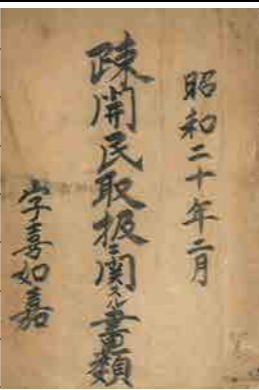 昭和二十年二月
疎開民取扱ニ関スル書類
字喜如嘉